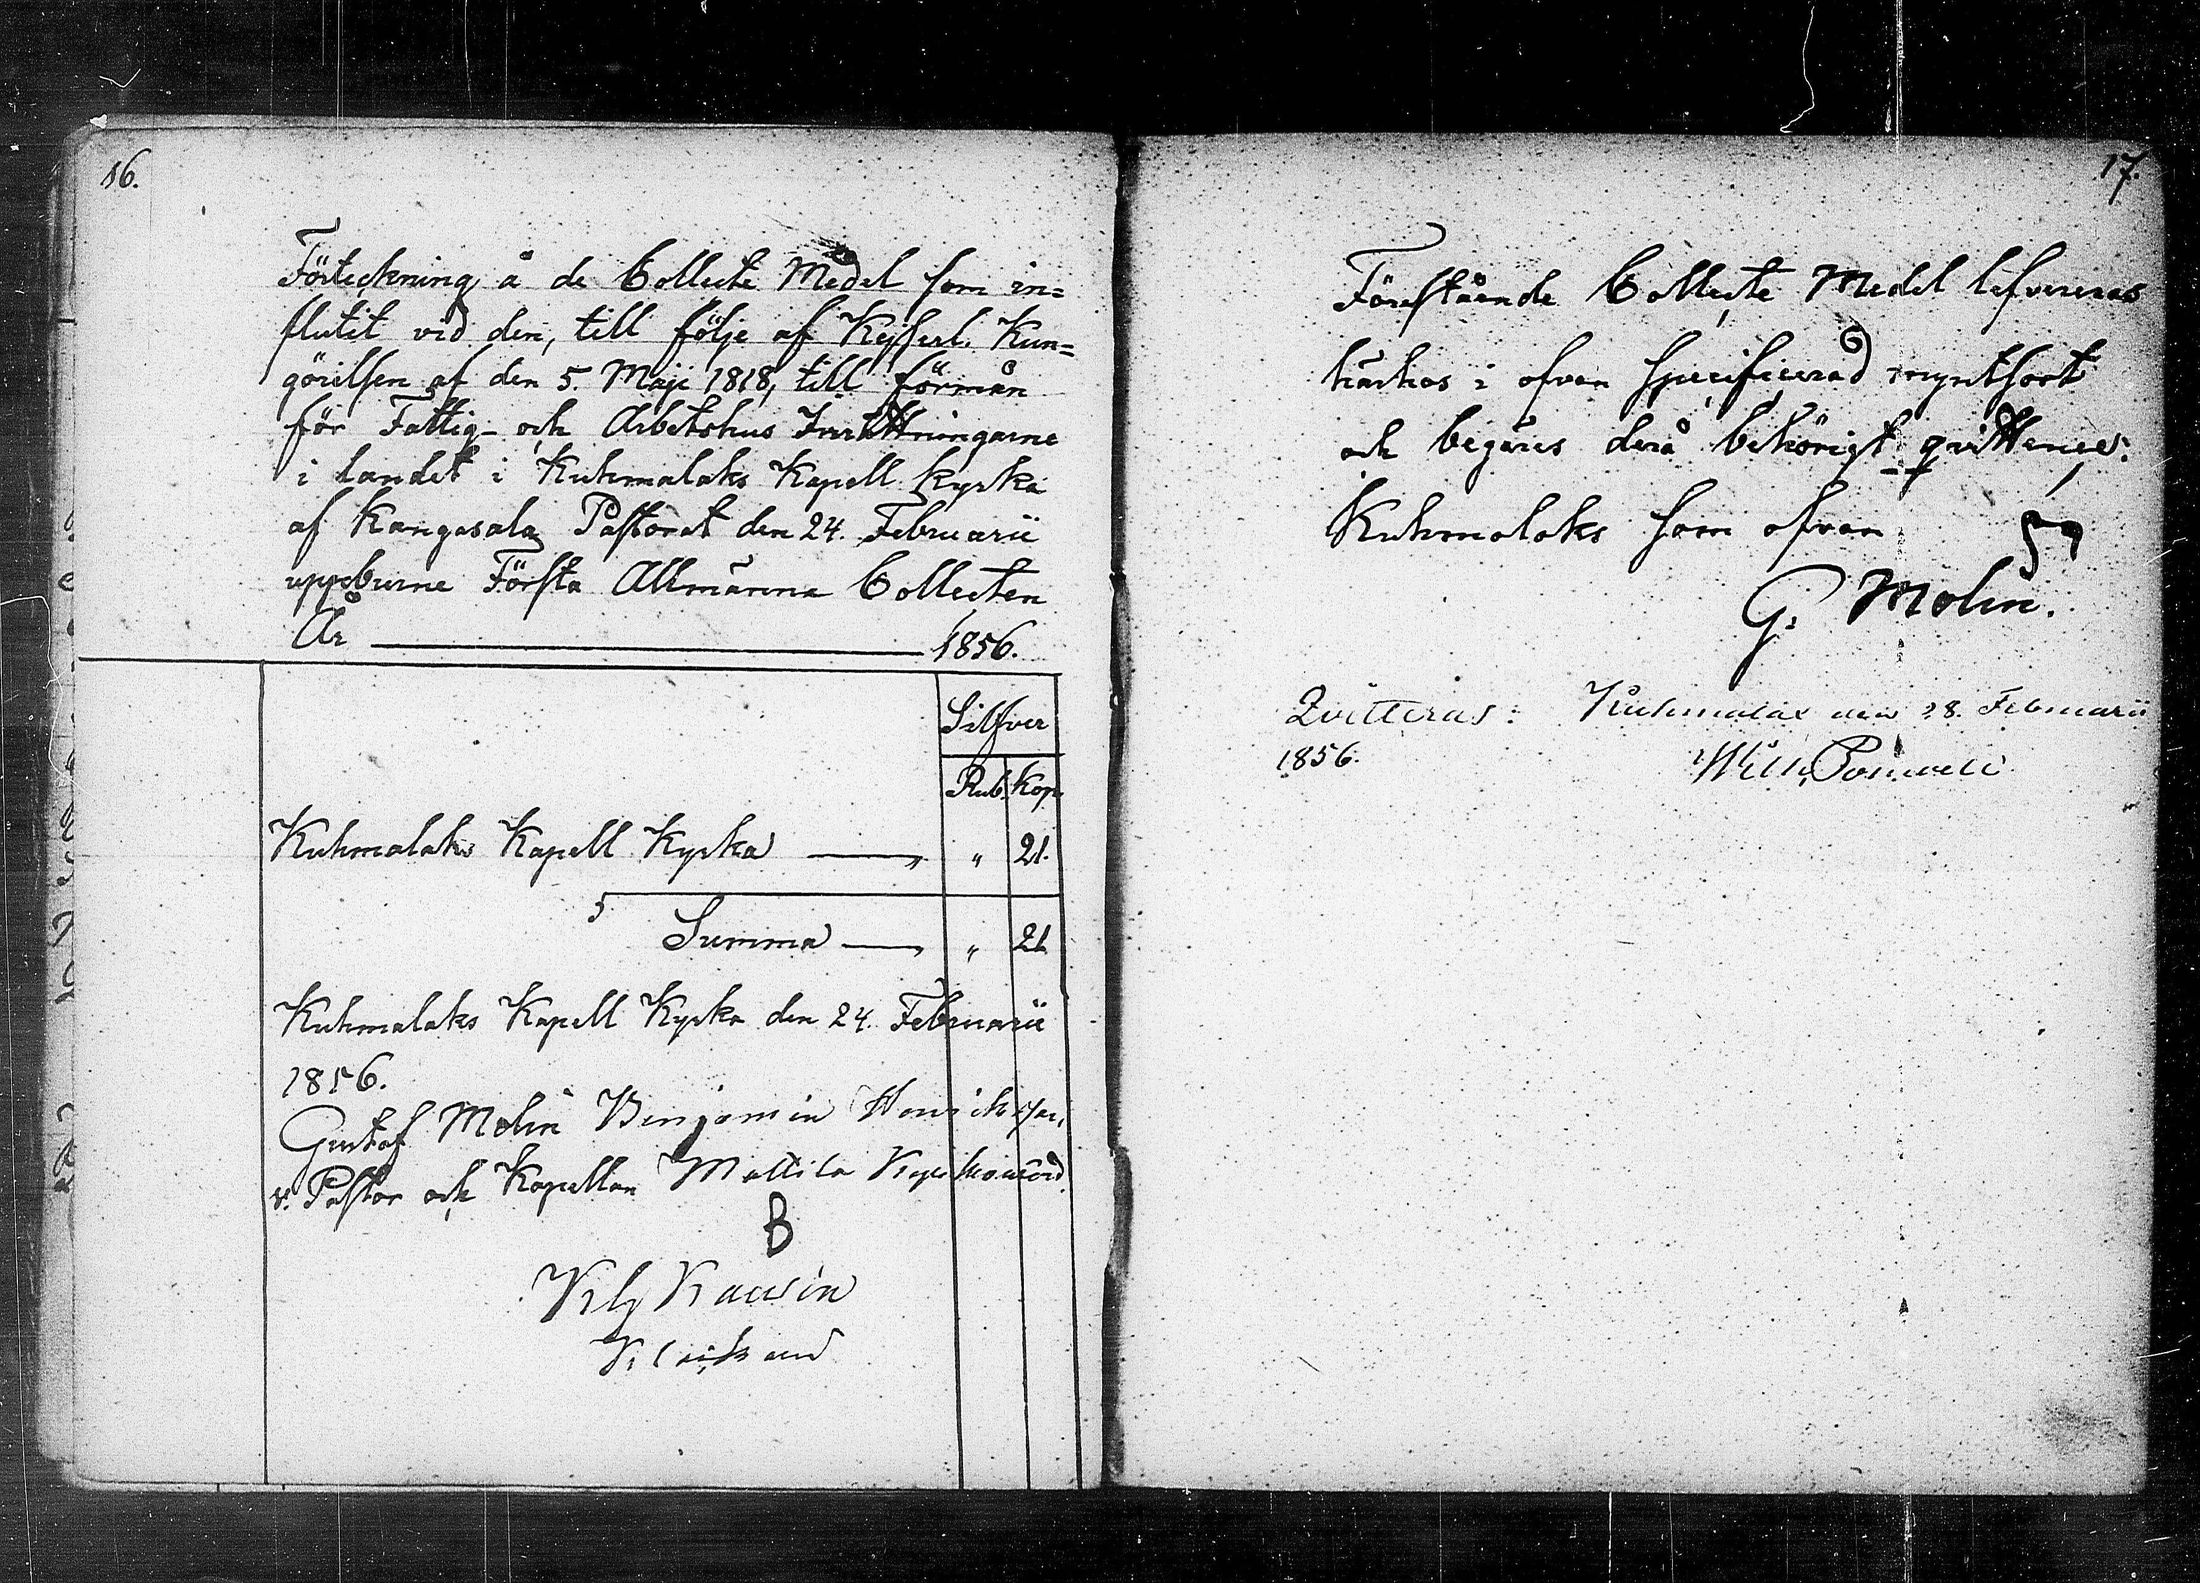 16.
Förteckning å de Collecte Medel som in=
flutit vid den, till följe af Kejserl. Kun=
görelsen af den 5. Maji 1818, till förmån
för Fattig- och Arbetshus Inrättningarne
i landet i Kuhmalaks Kapell kyrka
af Kangasala Pastorat den 24. Februarii
uppburne Första Allmänna Collecten
År 1856.
Silfver
Rub. Kop.
Kuhmalaks Kapell Kyrka " 21.
Summa " 21
Kuhmalaks Kapell Kyrka den 24. Februarii
1856.
Gustaf Molin Benjamin
v. Pastor och Kapellan Mattila
B
17.
Förestående Collecte Medel lefvereras
härhos i ofvan specificerad myntsort
och begäres derå behörigt qvittence.
Kuhmalaks som ofvan
G. Molin.
Qvitteras: Kuhmalax den 28. Februarii
1856.